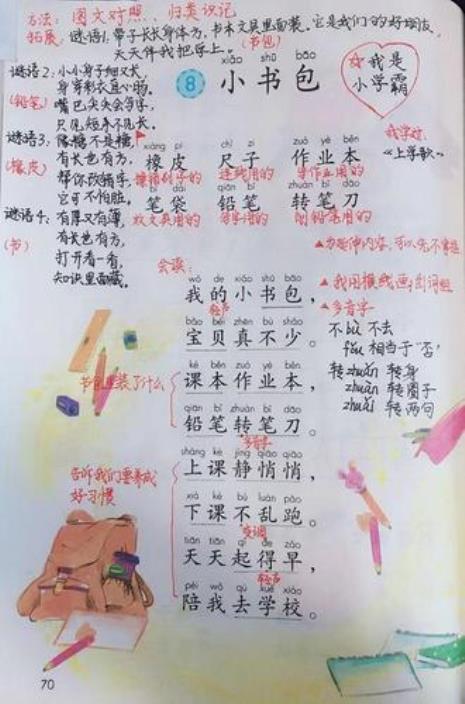 方法：图文对照、归类识记
拓展：谜语1：带子长长身体方，书本文具里面装。它是我们的好朋友，
天天伴我把学上。(书包)
xiǎo shū bāo
8 小书包
我是
小学霸
谜语2：小小身子细又长，
身穿彩衣直心肠。
(铅笔)
嘴巴尖尖会写字，
只见短来不见长。
谜语3：像糖不是糖，
有长也有方，
(橡皮)
帮你改错字，
它可不怕脏。
谜语4：有厚又有薄，
有长也有方，
(书)
打开看一看，
知识里面藏。
我学过
《上学歌》
xiàng pí chǐ zi zuò yè běn
橡皮 尺子 作业本
擦错别字的 连线用的 写作业用的
bǐ dài qiān bǐ zhuàn bǐ dāo
笔袋 铅笔 转笔刀
放文具用的 写字用的 削铅笔用的
会读：
wǒ de xiǎo shū bāo
我的小书包，
轻声
bǎo bèi zhēn bù shǎo
宝贝真不少。
书包里装了什么
kè běn zuò yè běn
课本作业本，
qiān bǐ zhuàn bǐ dāo
铅笔转笔刀。
多音字
告诉我们要养成
好习惯
shàng kè jìng qiāo qiāo
上课静悄悄，
xià kè bú luàn pǎo
下课不乱跑。
变调
tiān tiān qǐ de zǎo
天天起得早，
轻声
péi wǒ qù xué xiào
陪我去学校。
▲我用横线画出词组
▲多音字
不 bù 不去
fǒu 相当于“否”
转 zhuǎn 转身
zhuàn 转圈子
zhuǎi 转两句
70